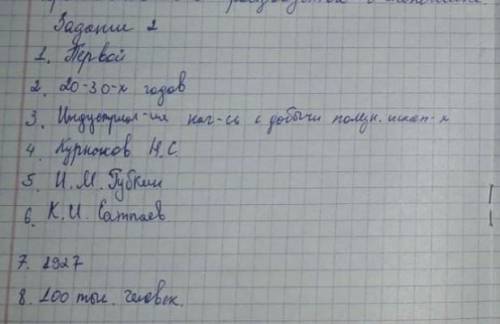 Задание 2
1. Первой
2. 20-30-х годов
3. Индустриал-ия нач-сь с добычи полезн.ископ-х
4. Курнаков Н.С.
5. И.М. Губкин
6. К.И. Сатпаев
7. 1927
8. 100 тыс. человек.